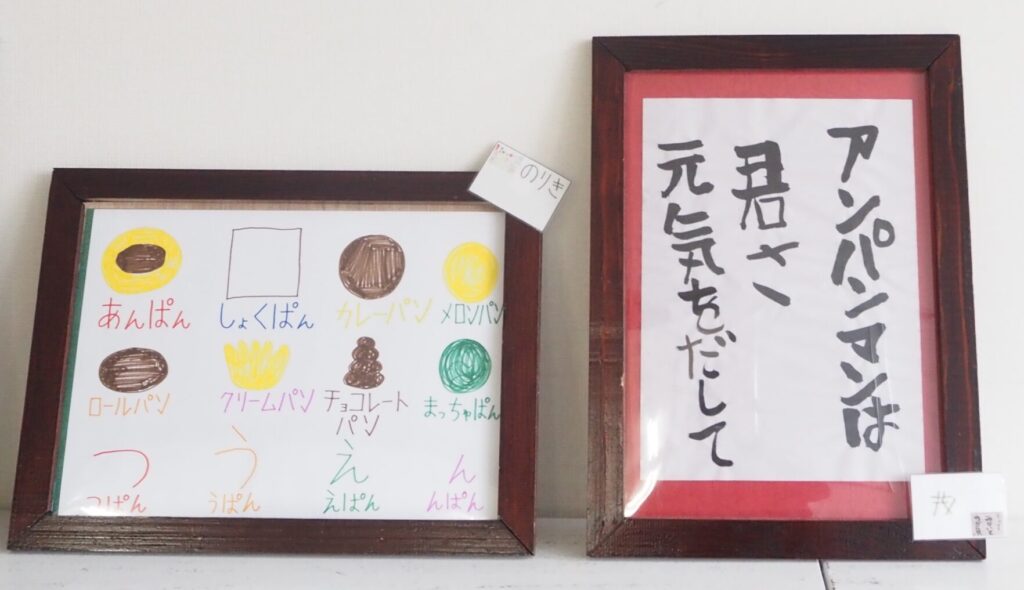 のりき
あんぱん
しょくぱん
カレーパン
メロンパン
ロールパン
クリームパン
チョコレート
パン
まっちゃぱん
つ
う
え
ん
つぱん
うぱん
えぱん
んぱん
アンパンマンは
君さ
元気をだして